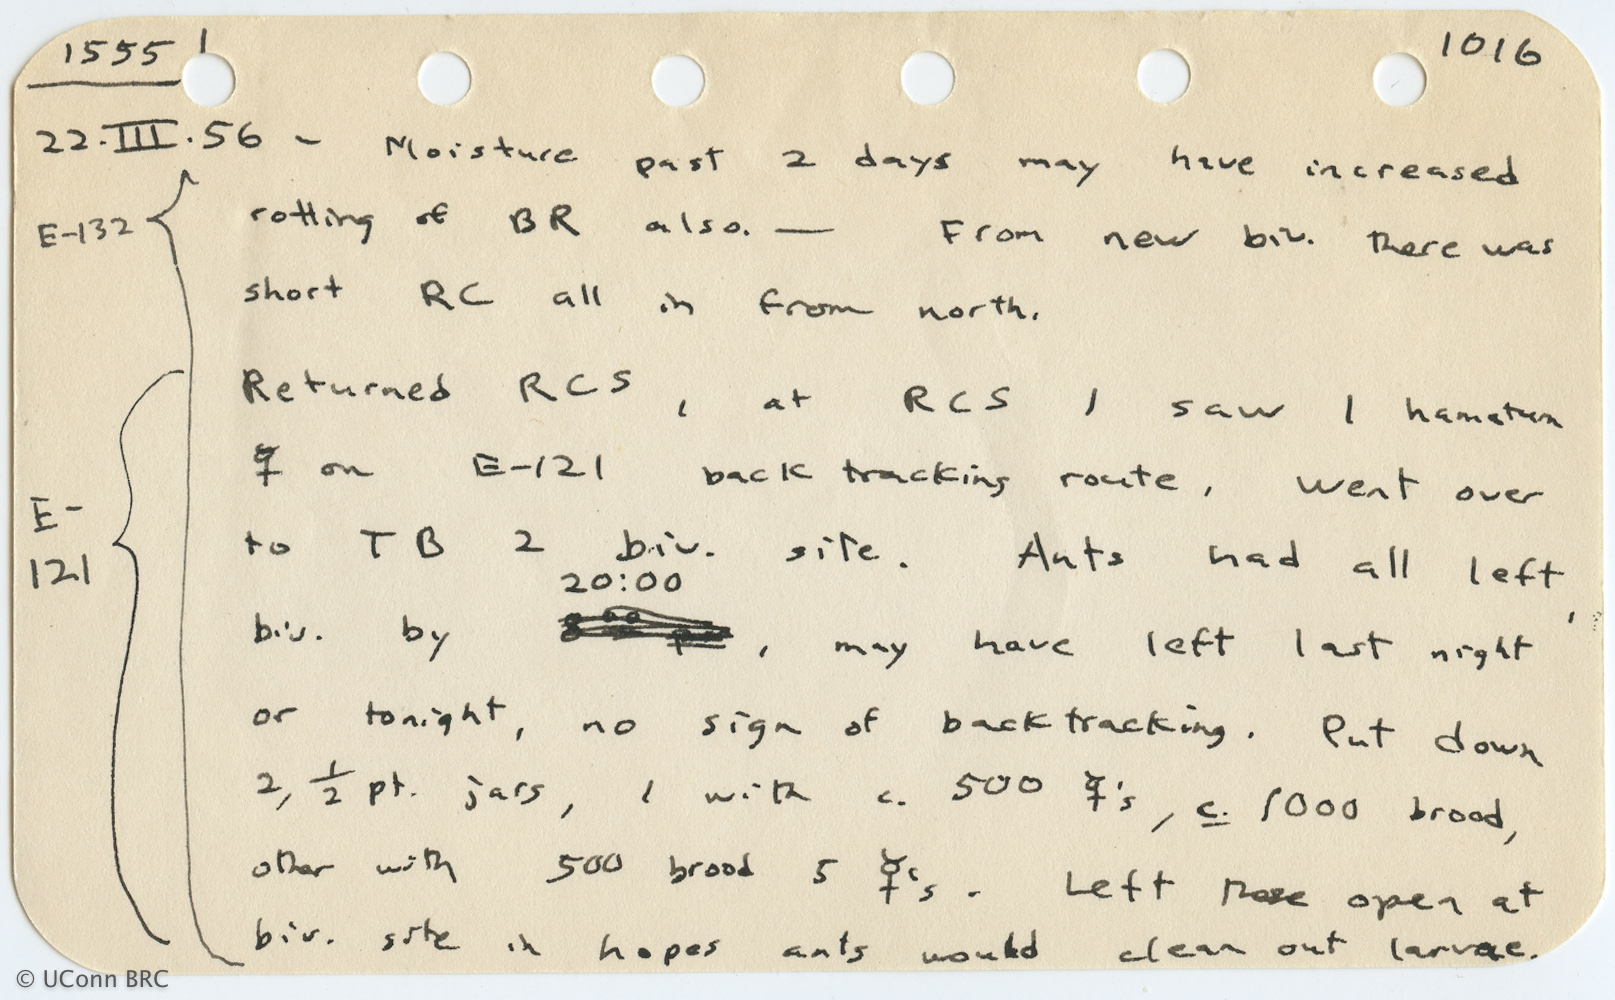 1555 1
1016
22.III.56 – Moisture past 2 days may have increased
E-132
rotting of BR also. — From new biv. there was
short RC all in from north.
Returned RCS, at RCS I saw 1 hamatum
☿ on E-121 backtracking route, went over
E-
121
to TB 2 biv. site. Ants had all left
20:00
biv. by , may have left last night
or tonight, no sign of backtracking. Put down
2, 1/2 pt. jars, 1 with c. 500 ☿'s, c. 1000 brood,
other with 500 brood 5 ☿'s. Left these open at
biv. site in hopes ants would clean out larvae.
© UConn BRC